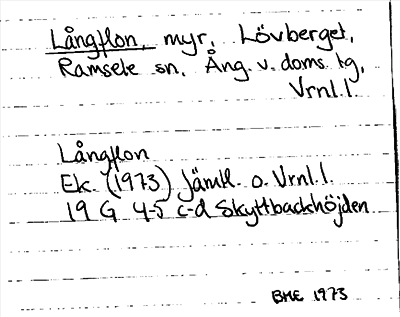 Långflon, myr, Lövberget,
Ramsele sn, Ång. v. doms. tg,
Vrnl. l.
Långflon
Ek. (1973) Jämtl. o. Vrnl. l.
19 G 4-5 c-d Skyttbackhöjden
BME 1973